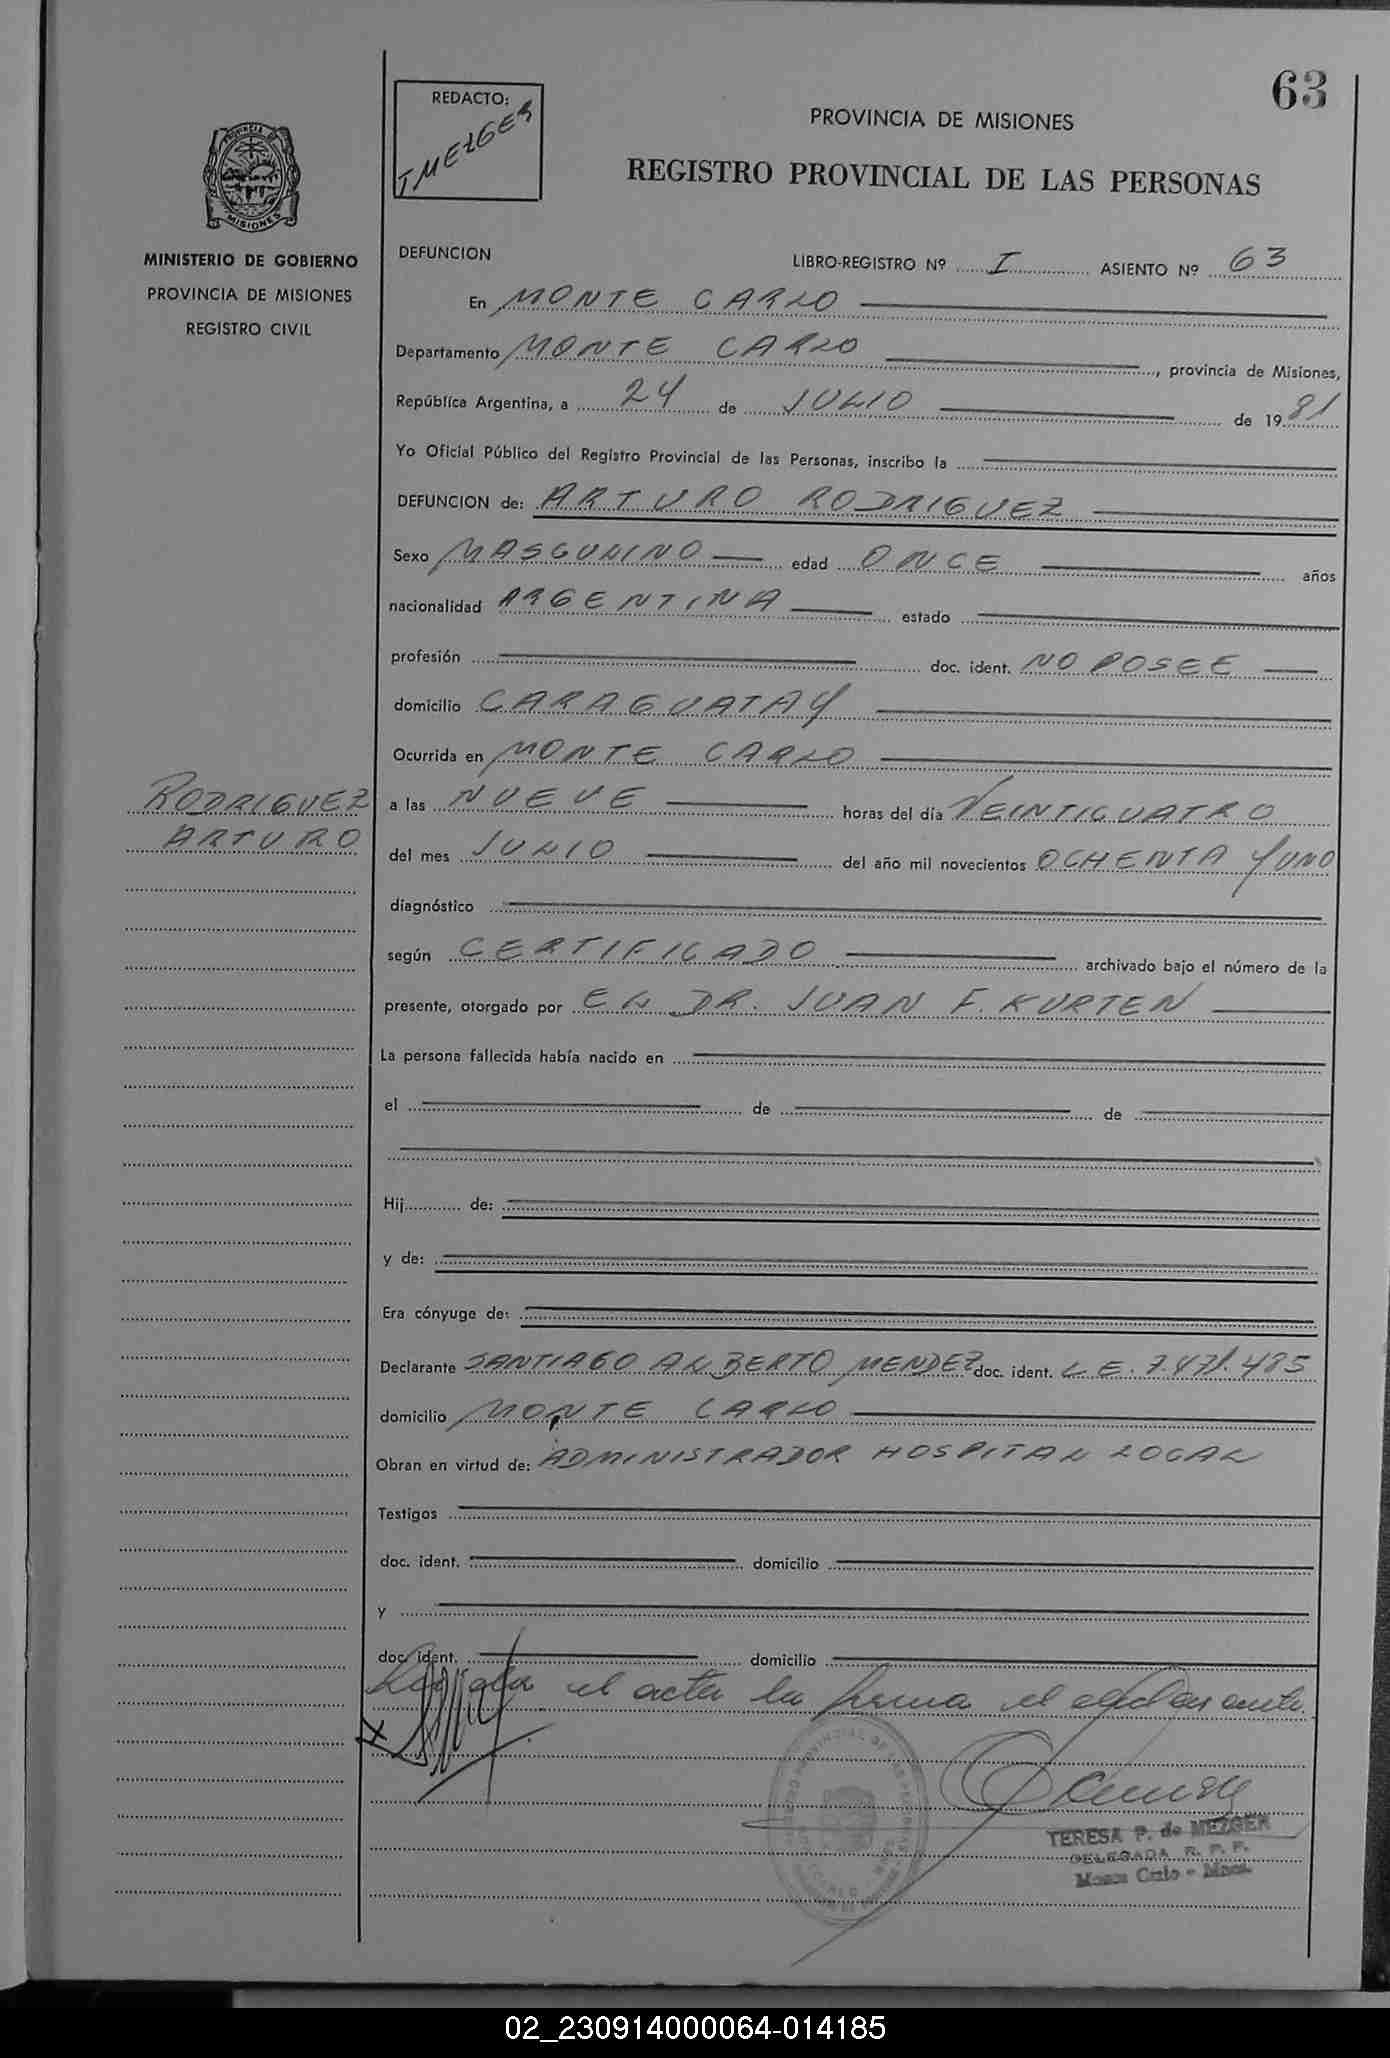 63
REDACTO:
TMEZGER
PROVINCIA DE MISIONES
REGISTRO PROVINCIAL DE LAS PERSONAS
MISIONES
MINISTERIO DE GOBIERNO
PROVINCIA DE MISIONES
REGISTRO CIVIL
DEFUNCION LIBRO-REGISTRO Nº I ASIENTO Nº 63
En MONTE CARLO
Departamento MONTE CARLO, provincia de Misiones,
República Argentina, a 24 de JULIO de 1981
Yo Oficial Público del Registro Provincial de las Personas, inscribo la
DEFUNCION de: ARTURO RODRIGUEZ
Sexo MASCULINO edad ONCE años
nacionalidad ARGENTINA estado
profesión doc. ident. NO POSEE
domicilio CARAGUATAY
Ocurrida en MONTE CARLO
RODRIGUEZ
ARTURO
a las NUEVE horas del día VEINTICUATRO
del mes JULIO del año mil novecientos OCHENTA Y UNO
diagnóstico
según CERTIFICADO archivado bajo el número de la
presente, otorgado por EL DR. JUAN F. KURTEN
La persona fallecida había nacido en
el de de
Hij de:
y de:
Era cónyuge de:
Declarante SANTIAGO ALBERTO MENDEZ doc. ident. L E. 7.471.485
domicilio MONTE CARLO
Obran en virtud de: ADMINISTRADOR HOSPITAL LOCAL
Testigos
doc. ident. domicilio
y
doc. ident. domicilio
el acta la firma el
TERESA P. de MEZGER
DELEGADA R. P. P.
02_230914000064-014185